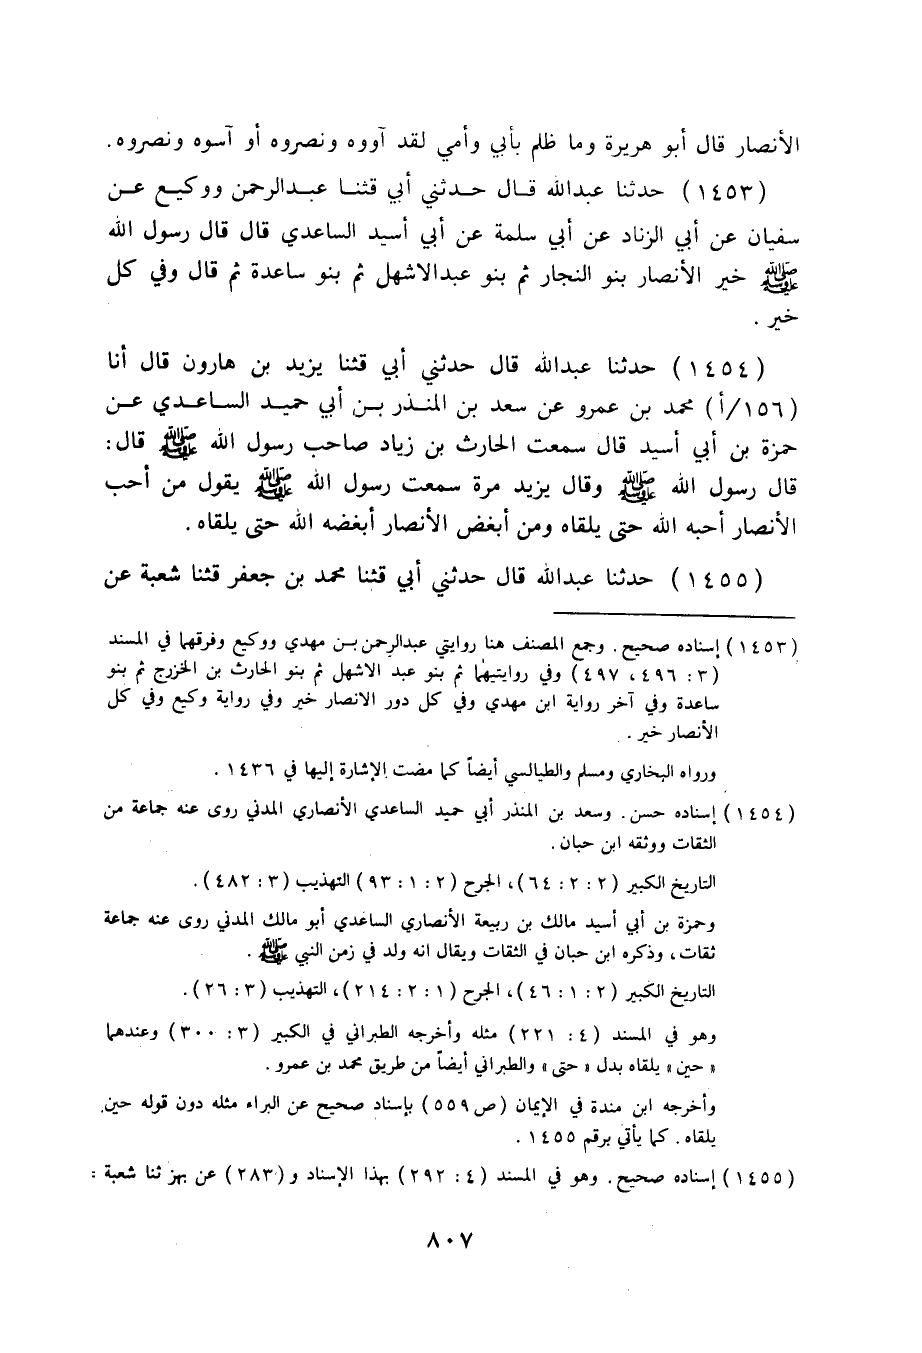 الأنصار قال أبو هريرة وما ظلم بأبي وأمي لقد آووه ونصروه أو آسوه ونصروه.
(١٤٥٣) حدثنا عبدالله قال حدثني أبي قثنا عبدالرحمن ووكيع عن
سفيان عن أبي الزناد عن أبي سلمة عن أبي أسيد الساعدي قال قال رسول الله
ﷺ خير الأنصار بنو النجار ثم بنو عبدالاشهل ثم بنو ساعدة ثم قال وفي كل
خير .
(١٤٥٤) حدثنا عبدالله قال حدثني أبي قثنا يزيد بن هارون قال أنا
(١٥٦/أ) محمد بن عمرو عن سعد بن المنذر بن أبي حميد الساعدي عن
حمزة بن أبي أسيد قال سمعت الحارث بن زياد صاحب رسول الله ﷺ قال:
قال رسول الله ﷺ وقال يزيد مرة سمعت رسول الله ﷺ يقول من أحب
الأنصار أحبه الله حتى يلقاه ومن أبغض الأنصار أبغضه الله حتى يلقاه.
(١٤٥٥) حدثنا عبدالله قال حدثني أبي قثنا محمد بن جعفر قثنا شعبة عن
(١٤٥٣) إسناده صحيح. وجمع المصنف هنا روايتي عبدالرحمن بن مهدي ووكيع وفرقهما في المسند
(٣: ٤٩٦، ٤٩٧) وفي روايتيهما ثم بنو عبد الاشهل ثم بنو الحارث بن الخزرج ثم بنو
ساعدة وفي آخر رواية ابن مهدي وفي كل دور الانصار خير وفي رواية وكيع وفي كل
الأنصار خير .
ورواه البخاري ومسلم والطيالسي أيضاً كما مضت الإشارة إليها في ١٤٣٦ .
(١٤٥٤) إسناده حسن. وسعد بن المنذر أبي حميد الساعدي الأنصاري المدني روى عنه جماعة من
الثقات ووثقه ابن حبان .
التاريخ الكبير (٢: ٢: ٦٤)، الجرح (٢: ١: ٩٣) التهذيب (٣: ٤٨٢).
وحمزة بن أبي أسيد مالك بن ربيعة الأنصاري الساعدي أبو مالك المدني روى عنه جماعة
ثقات، وذكره ابن حبان في الثقات ويقال انه ولد في زمن النبي ﷺ .
التاريخ الكبير (٢: ١: ٤٦)، الجرح (١: ٢: ٢١٤)، التهذيب (٣: ٢٦).
وهو في المسند (٤: ٢٢١) مثله وأخرجه الطبراني في الكبير (٣: ٣٠٠) وعندهما
« حين » يلقاه بدل « حتى » والطبراني أيضاً من طريق محمد بن عمرو .
وأخرجه ابن مندة في الإيمان (ص ٥٥٩) بإسناد صحيح عن البراء مثله دون قوله حين
يلقاه. كما يأتي برقم ١٤٥٥ .
(١٤٥٥) إسناده صحيح. وهو في المسند (٤: ٢٩٢) بهذا الإسناد و(٢٨٣) عن بهز ثنا شعبة :
٨٠٧